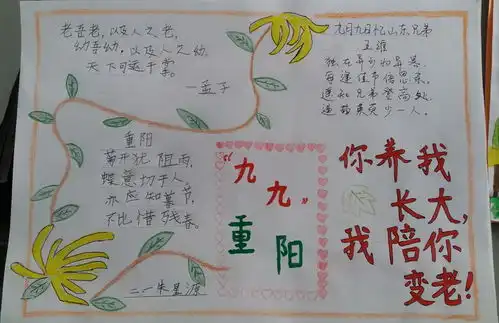 老吾老,以及人之老,
幼吾幼,以及人之幼,
天下可运于掌。
—孟子
九月九日忆山东兄弟
王维
独在异乡为异客,
每逢佳节倍思亲。
遥知兄弟登高处,
遍插茱萸少一人。
重阳
菊开犹阻雨,
蝶意切于人
亦应知暮节,
不比惜残春。
九九,
重阳
你养我
长大,
我陪你
变老!
二一朱星源